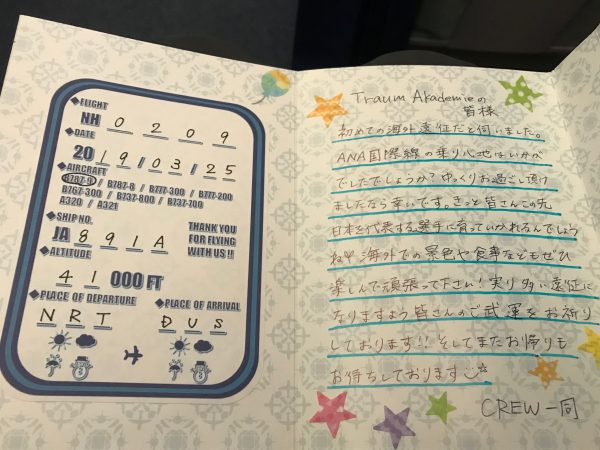 ◆FLIGHT
NH 0 2 0 9
◆DATE
20 19/03/25
◆AIRCRAFT
B787-9 / B787-8 / B777-300 / B777-200
B767-300 / B737-800 / B737-700
A320 / A321
◆SHIP NO.
JA 8 9 1 A
THANK YOU
FOR FLYING
WITH US !!
◆ALTITUDE
4 1 000 FT
◆PLACE OF DEPARTURE
N R T
◆PLACE OF ARRIVAL
D U S
Traum Akademieの
皆様
初めての海外遠征だと伺いました。
ANA国際線の乗り心地はいかが
でしたでしょうか?ゆっくりお過ごし頂け
ましたなら幸いです。きっと皆さんこの先
日本を代表する選手に育っていかれるんでしょう
ね♥海外での景色や食事などもぜひ
楽しんで頑張って下さい!実り多い遠征に
なりますよう皆さんのご武運をお祈り
しております!!そしてまたお帰りも
お待ちしております
CREW一同